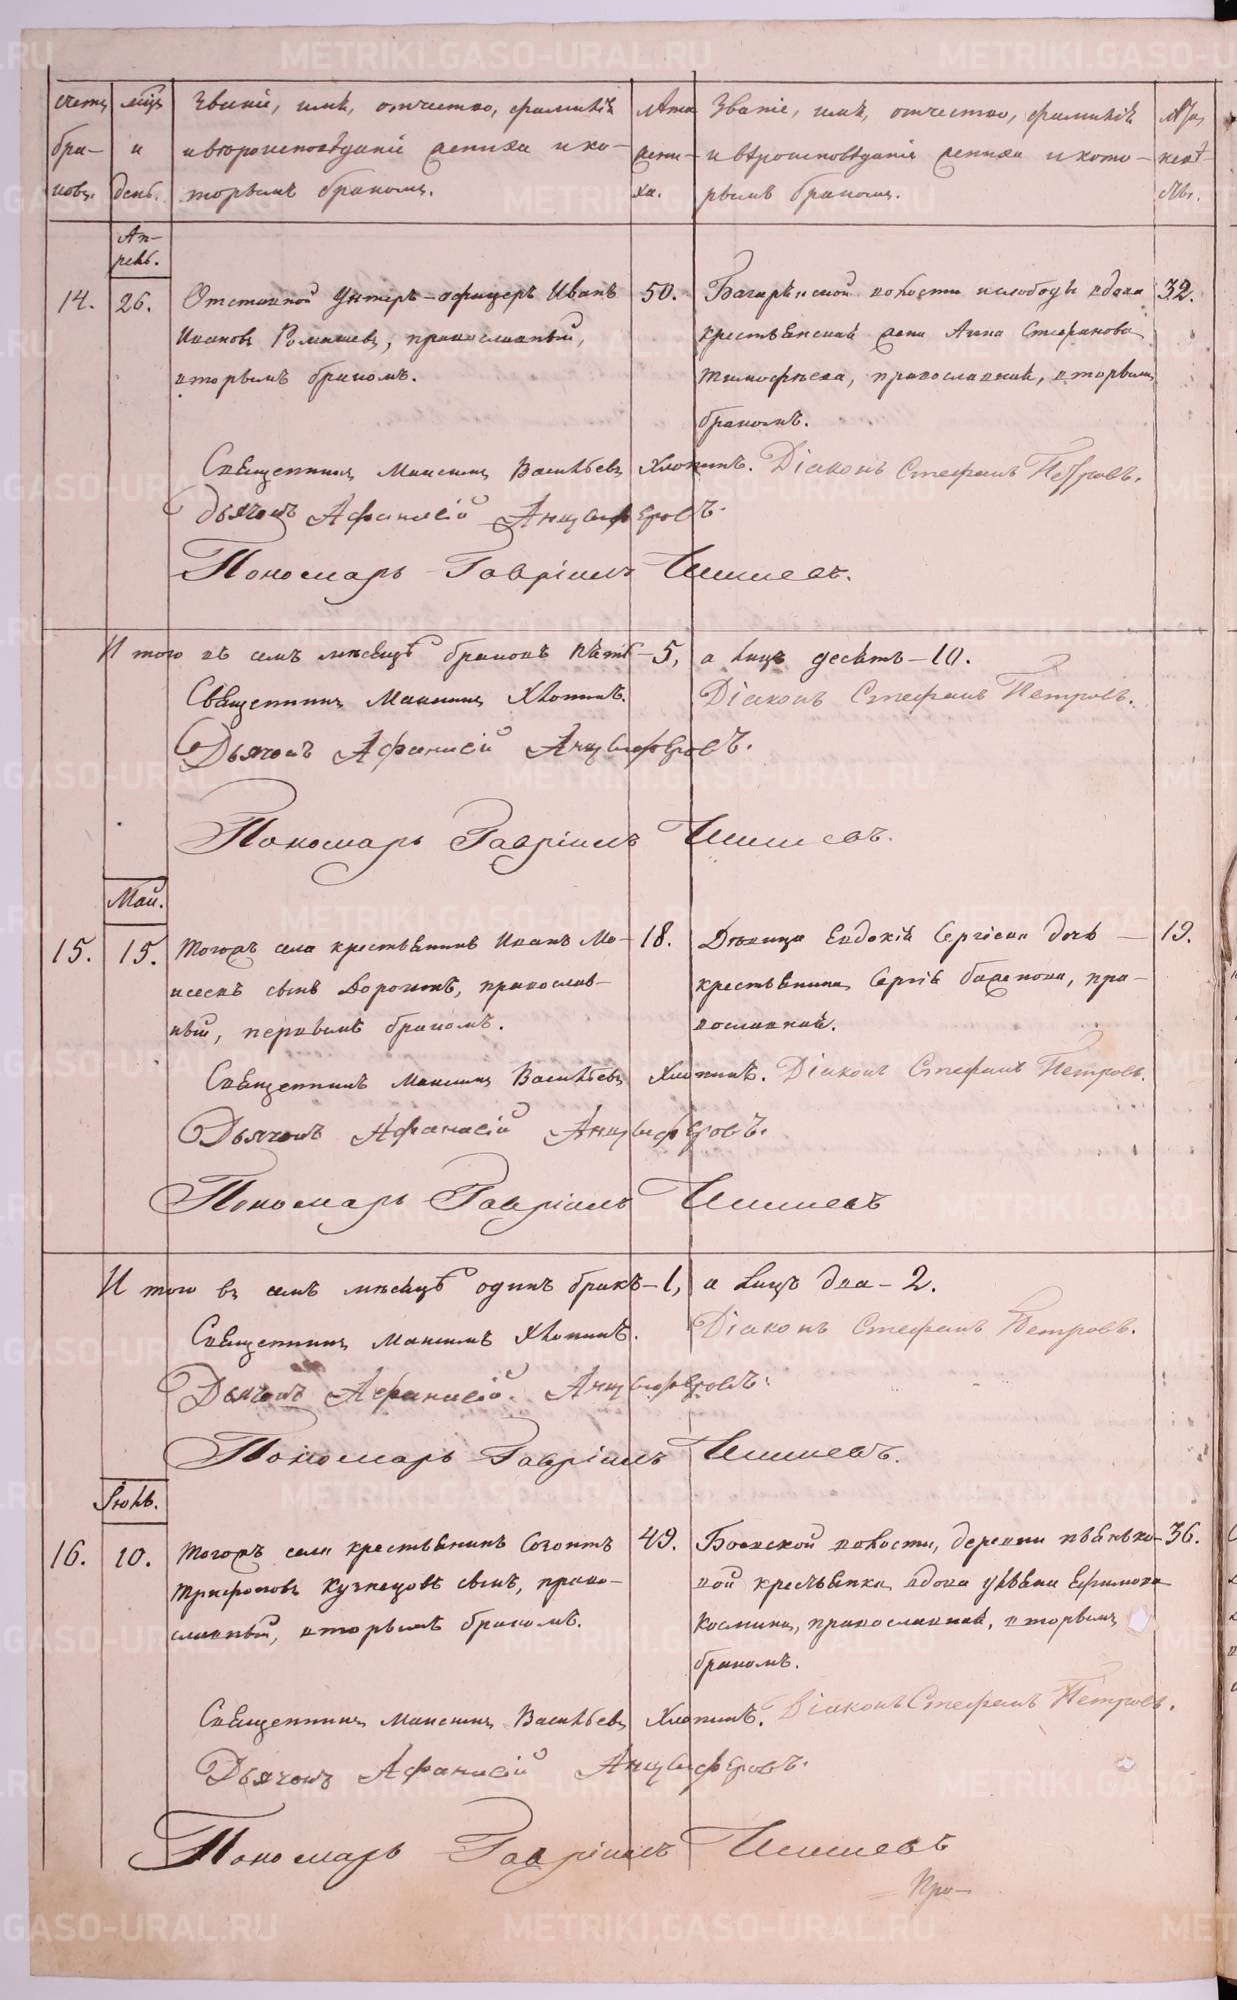 счетъ
бра-
ковъ.
мѣц
и
день.
Званіе, имя, отчество, фамилія
и вѣроисповѣданіе жениха и ко-
торымъ бракомъ.
Лѣта
жени-
ха.
Званіе, имя, отчество, фамилія
и вѣроисповѣданія жениха и кото-
рымъ бракомъ.
Лѣта
невѣ-
сты.
Ап-
рель.
14.
26.
Отставной Унтеръ-офицеръ Иванъ
Ивановъ Ромашевъ, православный,
вторымъ бракомъ.
50.
Багарякской волости и слободы вдова
крестьянская жена Анна Стефанова
Тимофѣева, православная, вторымъ
бракомъ.
32.
Священникъ Максимъ Васильевъ Хлопинъ. Діаконъ Стефанъ Петровъ.
Дьячокъ Афанасій Анцыферовъ.
Пономарь Гавріилъ Шишевъ.
И того въ семъ мѣсяцѣ браковъ пять - 5, а лицъ десять - 10.
Священникъ Максимъ Хлопинъ. Діаконъ Стефанъ Петровъ.
Дьячокъ Афанасій Анцыферовъ.
Пономарь Гавріилъ Шишевъ.
Май.
15.
15.
Тогожъ села крестьянинъ Иванъ Мо-
исеевъ сынъ Дорогинъ, православ-
ный, первымъ бракомъ.
18.
Дѣвица Евдокія Сергіева дочь
крестьянина Сергія Баженова, пра-
вославная.
19.
Священникъ Максимъ Васильевъ Хлопинъ. Діаконъ Стефанъ Петровъ.
Дьячокъ Афанасій Анцыферовъ.
Пономарь Гавріилъ Шишевъ
И того въ семъ мѣсяцѣ одинъ бракъ - 1, а лицъ два - 2.
Священникъ Максимъ Хлопинъ. Діаконъ Стефанъ Петровъ.
Дьячокъ Афанасій Анцыферовъ.
Пономарь Гавріилъ Шишевъ.
Іюль.
16.
10.
Тогожъ села крестьянинъ Созонтъ
Трифоновъ Кузнецовъ сынъ, право-
славный, вторымъ бракомъ.
49.
Боевской волости, деревни пьянько-
вой крестьянка вдова Ульяна Ефимова
Космина, православная, вторымъ
бракомъ.
36.
Священникъ Максимъ Васильевъ Хлопинъ. Діаконъ Стефанъ Петровъ.
Дьячокъ Афанасій Анцыферовъ.
Пономарь Гавріилъ Шишевъ
Про-
METRIKI.GASO-URAL.RU